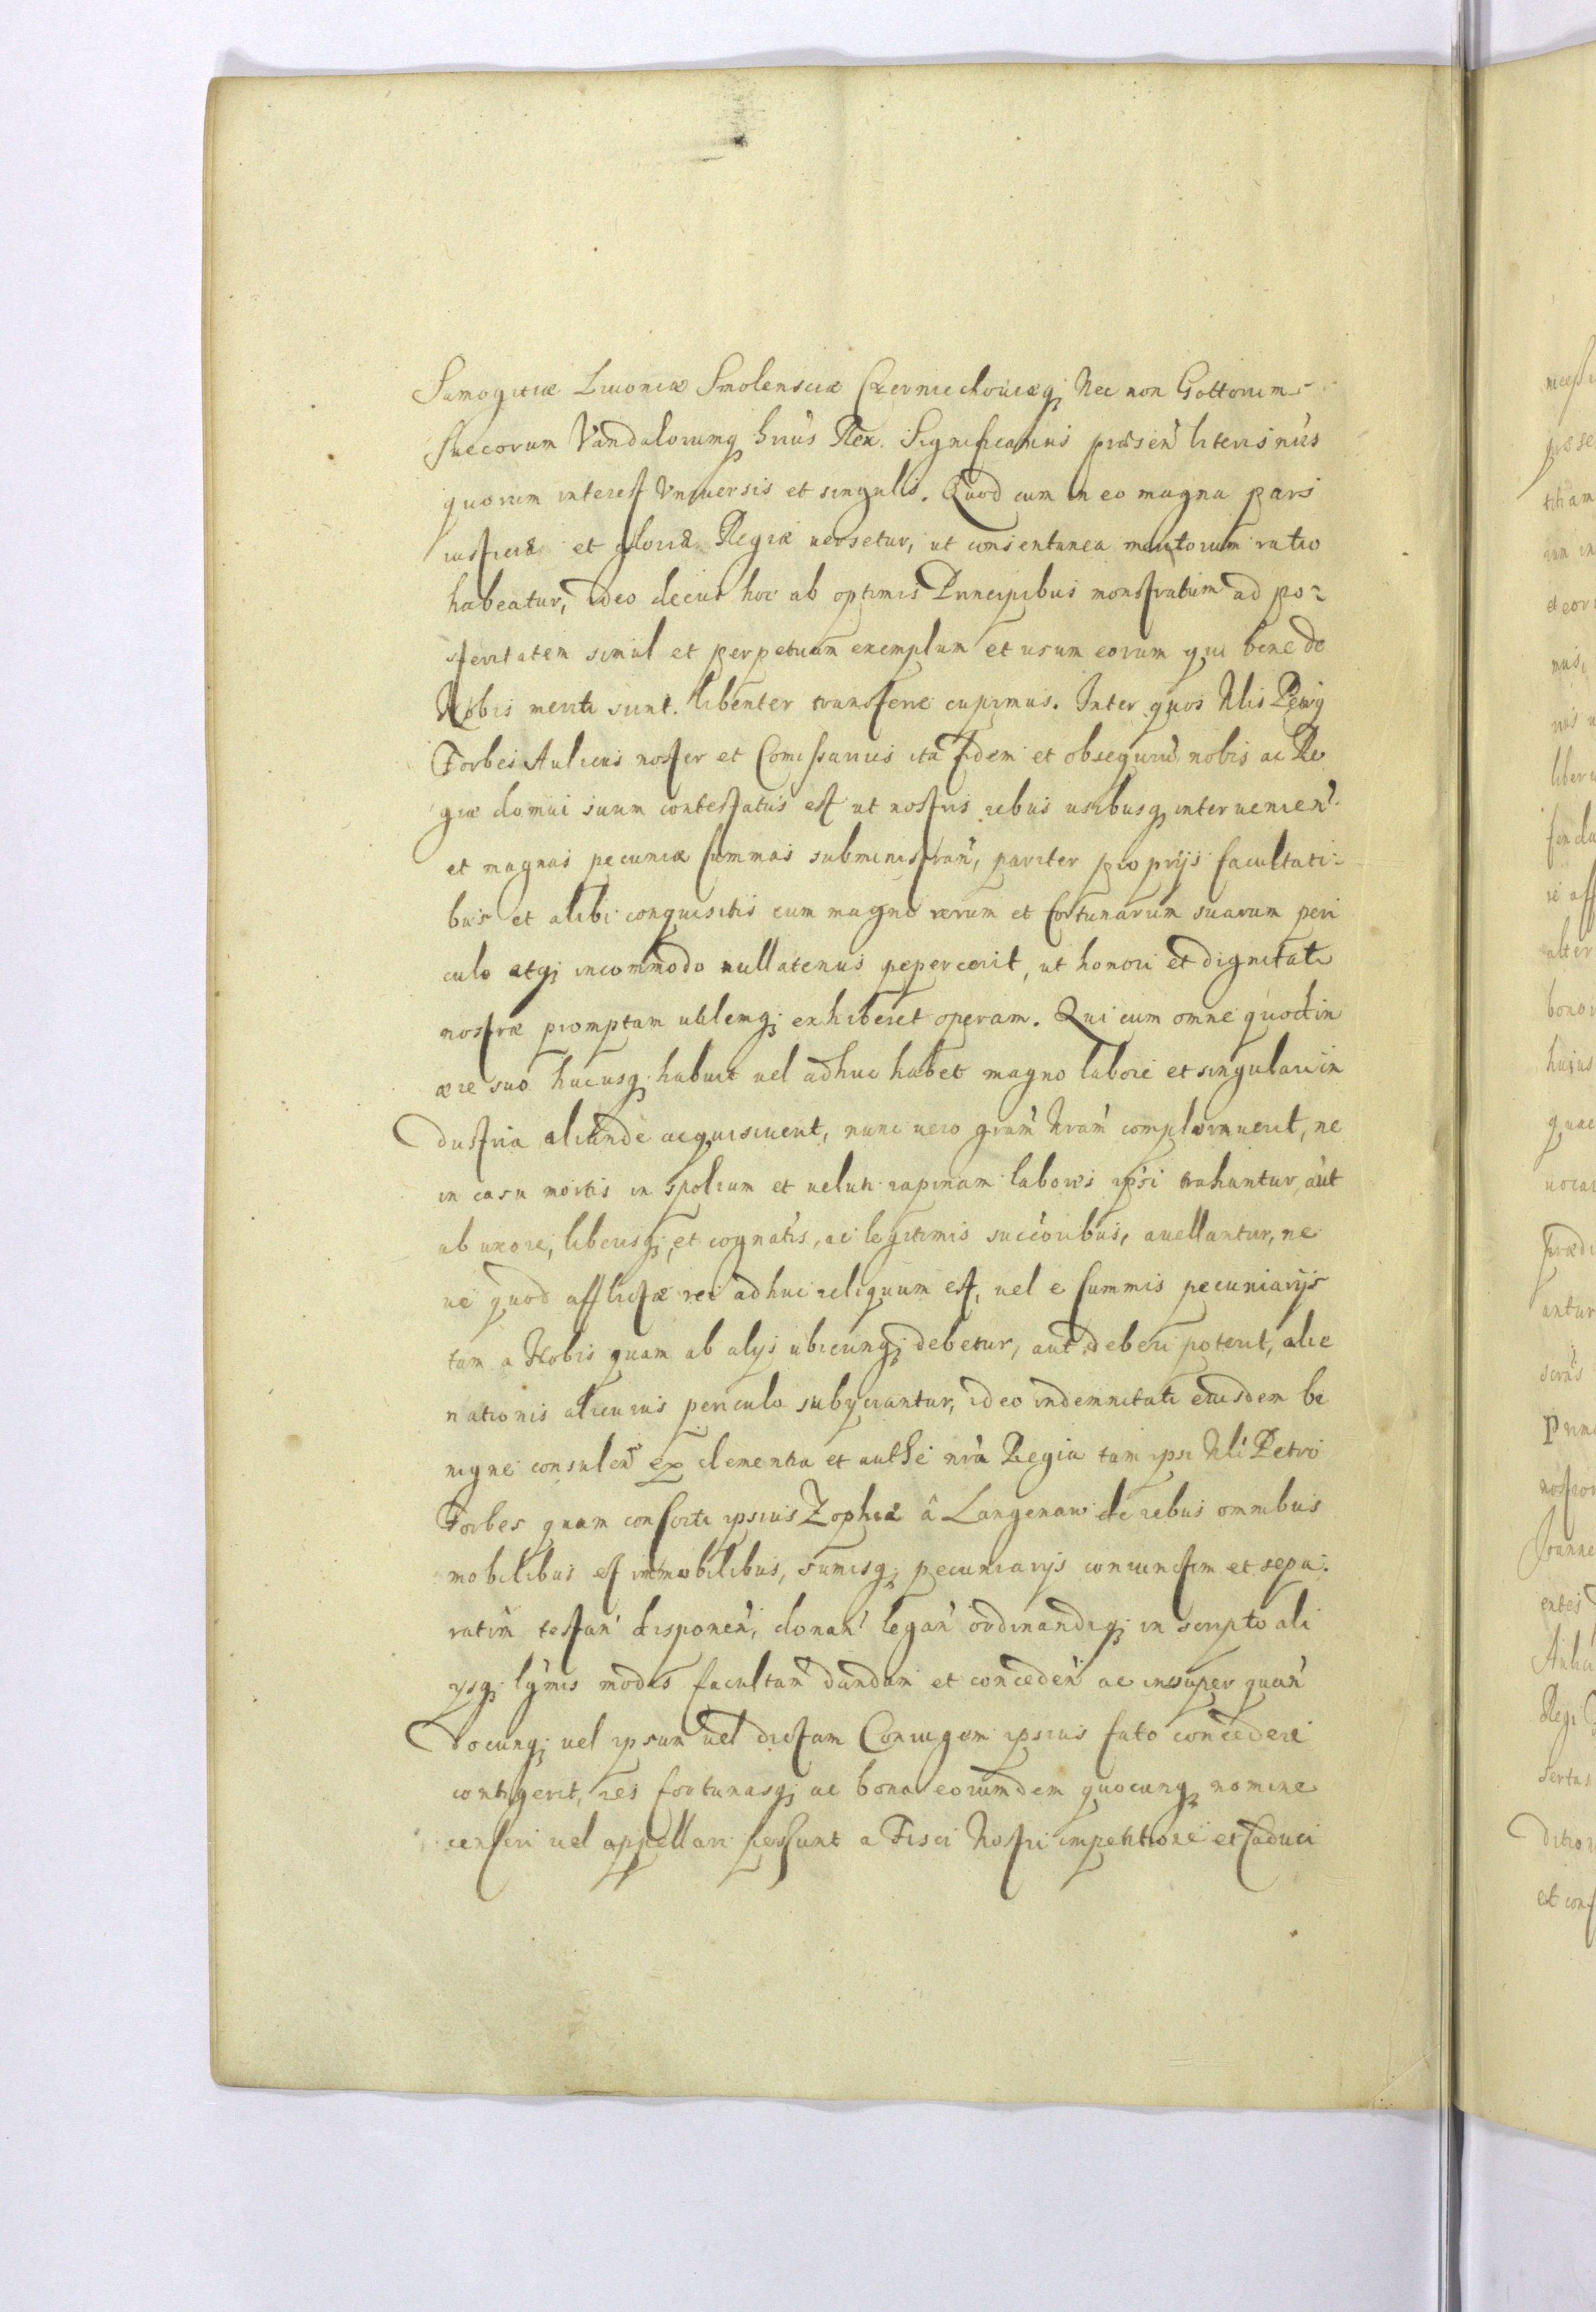 Samogitiæ Livoniæ Smolensciæ Czerniechoviæq; Nec non Gottorum
Suecorum Vandalorumq; hrius Rex. Significamus præsen' literis n'ris
quorum interest Universis et singulis. Quod cum in eo magna pars
iustitiæ et gloriæ Regiæ uersetur, ut consentanea meritorum ratio
habeatur, ideo decus hoc ab optimis Principibus monstratum ad po-
steritatem simul et perpetuum exemplum et usum eorum qui bene de
Nobis meriti sunt. libenter transferre cupimus. Inter quos Nlis
Forbes Aulicus noster et Comissarius ita fidem et obsequiu' nobis ac Re
giæ domui suum contestatus est ut nostris rebus usibusq; interuenien'
et magnas pecuniæ summas subministran', pariter proprijs facultati-
bus et alibi conquisitis cum magno rerum et fortunarum suarum peri
culo atq; incommodo nullatenus pepercerit, ut honori et dignitati
nostræ promptam utilemq; exhiberet operam. Qui cum omne quod in
ære suo hucusq; habuit uel adhuc habet magno labore et singulari in
dustria aliunde acquisiuerit, nunc uero gram' Nram' implorauerit, ne
in casu mortis in spolium et ueluti rapinam labores ipsi trahantur, aut
ab uxore, liberisq; et cognatis, ac legitimis succ'oribus, auellantur, ne
ue quod afflictæ rei adhuc reliquum est, uel e summis pecuniarijs
tam a Nobis quam ab alijs ubicunq; debetur, aut deberi poterit, alie
nationis alicuius periculo subijciantur, ideo indemnitati eiusdem be
nigne consulen' ex clementia et authe n'ra Regia tam ipsi Nli Petro
Forbes quam consorti ipsius Zophiæ â Langenaw de rebus omnibus
mobilibus et immobilibus, sumisq; pecuniarijs coniunctim et sepa-
ratim testan' disponen', donan' legan' ordinandiq; in scripto ali
ysq; lg'mis modis facultam dandam et conceden' ac insuper quan'
docunq; uel ipsum uel dictam Coniugem ipsius fato concedere
contigerit, res fortunasq; ac bona eorumdem quocunq; nomine
censeri uel appellari possunt a Fisci Nostri impetitione et Caduci